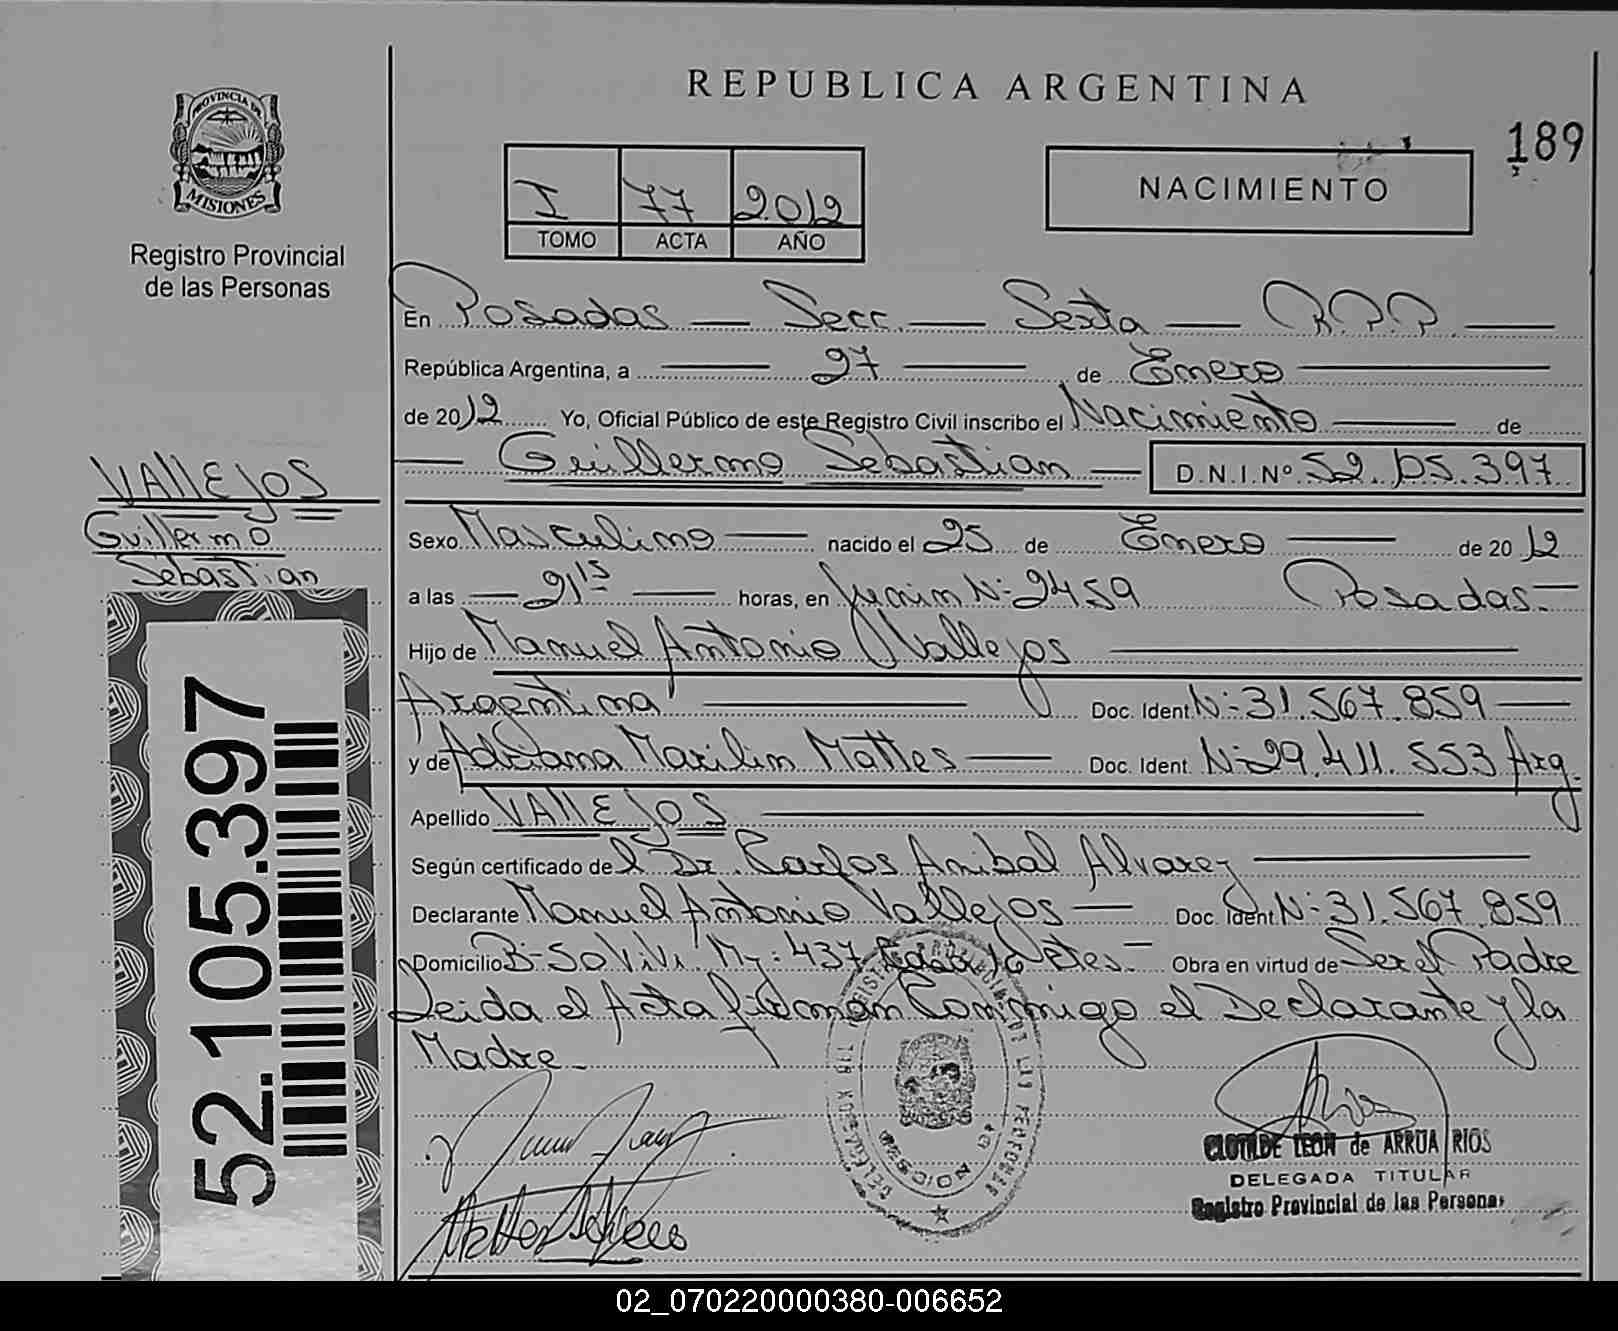 REPUBLICA ARGENTINA
189
PROVINCIA DE
MISIONES
Registro Provincial
de las Personas
I 77 2012
TOMO ACTA AÑO
NACIMIENTO
En Posadas — Secc. — Sexta — R.P.P. —
República Argentina, a — 27 — de Enero —
de 2012 Yo, Oficial Público de este Registro Civil inscribo el Nacimiento — de
— Guillermo Sebastian — D.N.I.Nº 52.105.397
VALLEJOS
Guillermo
Sebastian
52.105.397
Sexo Masculino — nacido el 25 de Enero — de 2012
a las — 21 15 — horas, en Junin Nº 2459 Posadas.—
Hijo de Manuel Antonio Vallejos —
Argentina — Doc. Ident. Nº 31.567.859 —
y de Adriana Marilin Mattes — Doc. Ident. Nº 29.411.553 Arg.
Apellido VALLEJOS —
Según certificado del Dr. Carlos Anibal Alvarez —
Declarante Manuel Antonio Vallejos — Doc. Ident. Nº 31.567.859
Domicilio Bº 50 Viv. Mz: 437 Casa 16 — Obra en virtud de Ser el Padre
Leida el Acta firman Conmigo el Declarante y la
Madre.
CLOTILDE LEON de ARRUA RIOS
DELEGADA TITULAR
Registro Provincial de las Personas
02_070220000380-006652